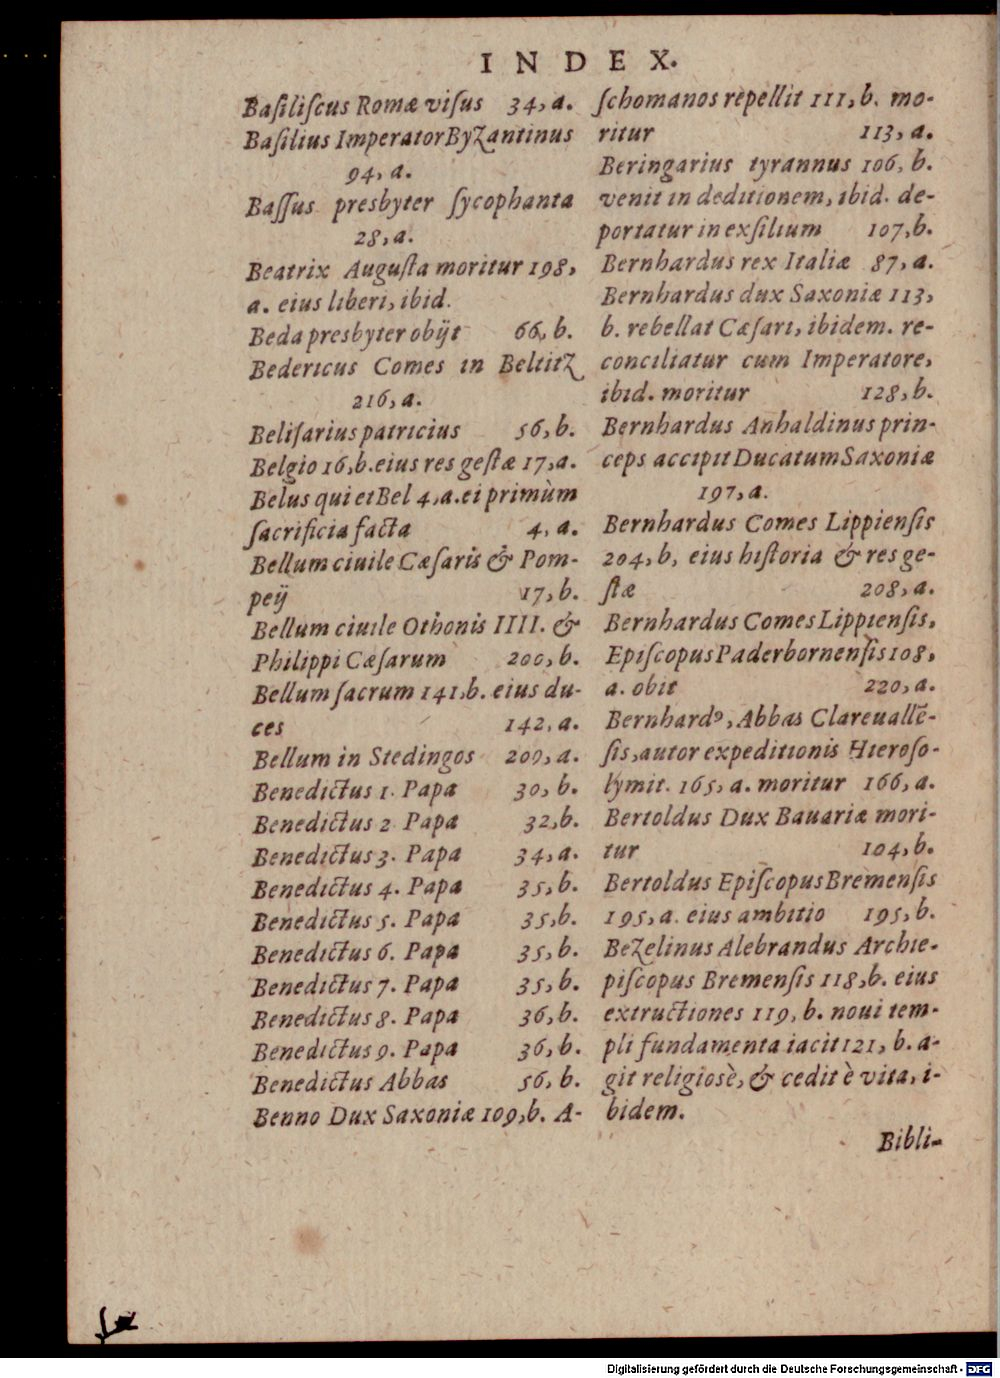 INDEX.
Baſiliſcus Romæ viſus 34, a.
Baſilius Imperator Byzantinus
94, a.
Baſſus presbyter ſycophanta
28, a.
Beatrix Auguſta moritur 198,
a. eius liberi, ibid.
Beda presbyter obijt 66, b.
Bedericus Comes in Beltitz
216, a.
Beliſarius patricius 56, b.
Belgio 16, b. eius res geſtæ 17, a.
Belus qui et Bel 4, a. ei primùm
ſacrificia facta 4, a.
Bellum ciuile Cæſaris & Pom-
peij 17, b.
Bellum ciuile Othonis IIII. &
Philippi Cæſarum 200, b.
Bellum ſacrum 141, b. eius du-
ces 142, a.
Bellum in Stedingos 209, a.
Benedictus 1. Papa 30, b.
Benedictus 2 Papa 32, b.
Benedictus 3. Papa 34, a.
Benedictus 4. Papa 35, b.
Benedictus 5. Papa 35, b.
Benedictus 6. Papa 35, b.
Benedictus 7. Papa 35, b.
Benedictus 8. Papa 36, b.
Benedictus 9. Papa 36, b.
Benedictus Abbas 56, b.
Benno Dux Saxoniæ 109, b. A-
ſchomanos repellit 111, b. mo-
ritur 113, a.
Beringarius tyrannus 106, b.
venit in deditionem, ibid. de-
portatur in exſilium 107, b.
Bernhardus rex Italiæ 87, a.
Bernhardus dux Saxoniæ 113,
b. rebellat Cæſari, ibidem. re-
conciliatur cum Imperatore,
ibid. moritur 128, b.
Bernhardus Anhaldinus prin-
ceps accipit Ducatum Saxoniæ
197, a.
Bernhardus Comes Lippienſis
204, b, eius hiſtoria & res ge-
ſtæ 208, a.
Bernhardus Comes Lippienſis,
Epiſcopus Paderbornenſis 108,
a. obit 220, a.
Bernhardꝰ, Abbas Clareuallē-
ſis, autor expeditionis Hieroſo-
lymit. 165, a. moritur 166, a.
Bertoldus Dux Bauariæ mori-
tur 104, b.
Bertoldus Epiſcopus Bremenſis
195, a. eius ambitio 195, b.
Bezelinus Alebrandus Archie-
piſcopus Bremenſis 118, b. eius
extructiones 119, b. noui tem-
pli fundamenta iacit 121, b. a-
git religiosè, & cedit è vita, i-
bidem.
Bibli-
Digitalisierung gefördert durch die Deutsche Forschungsgemeinschaft - DFG